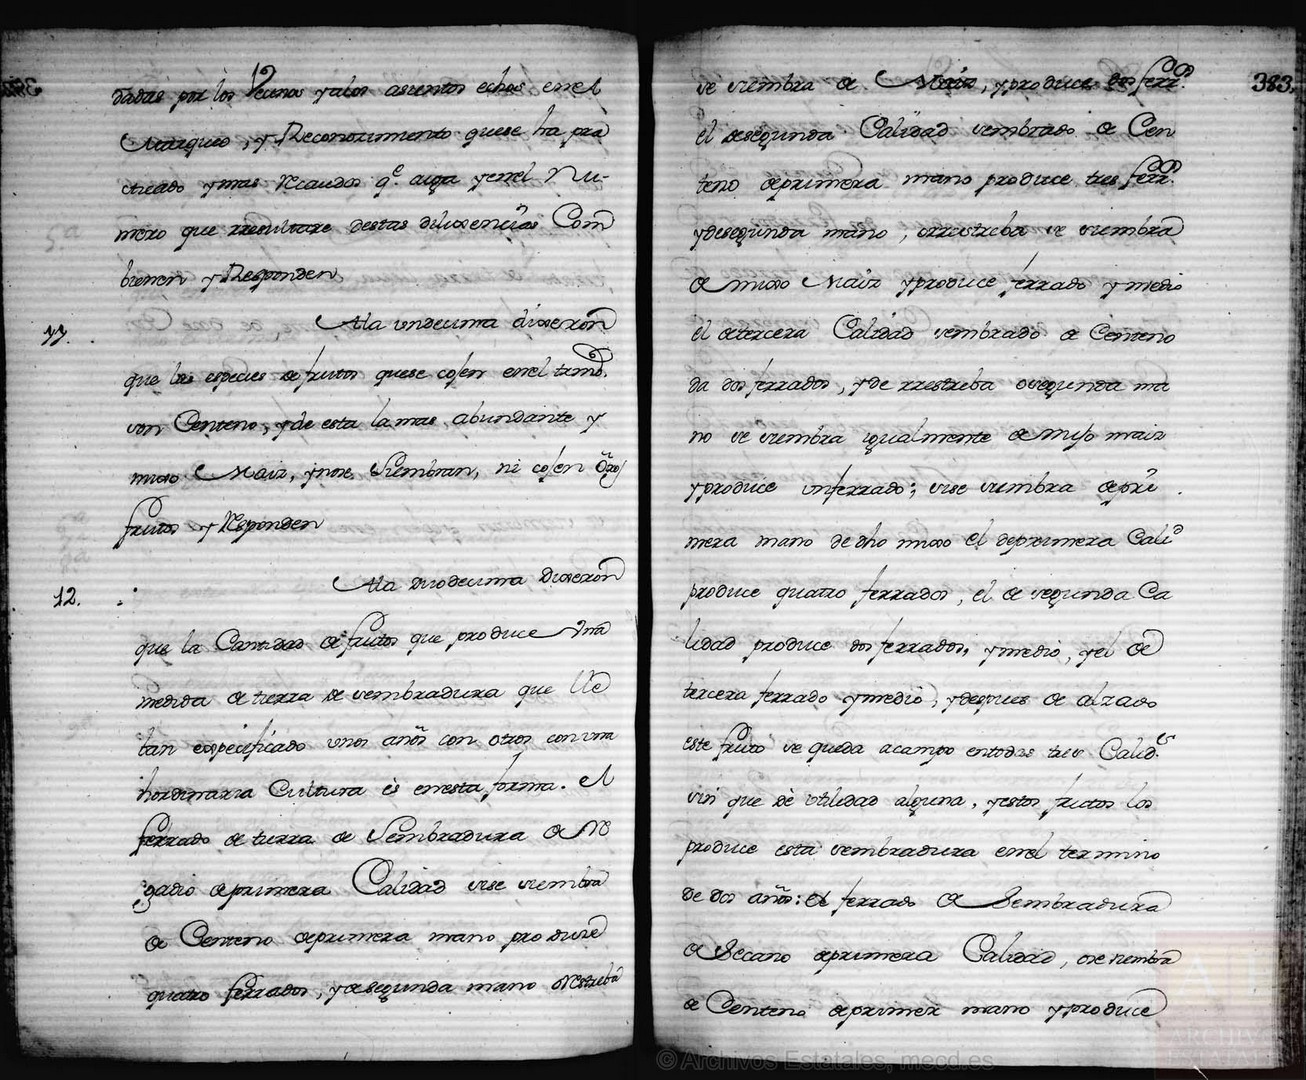 dadas por los Vecinos y alos asientos echos en el
Marqueo, y Reconocimiento quese ha pra
cticado y mas Recaudos q.e aiga y en el Nu-
mero que rresultare destas dilixencias Com
bienen y Responden
11. Ala undecima dixeron
que las especies de frutos quese cojen en el termo.
son Centeno, y de esta la mas abundante y
mixo Maiz, y no se Siembran, ni cojen otros
frutos y Responden
12. Ala Duodecima Dixeron
que la Cantidad de frutos que produce Una
medida de tierra de sembradura que lle
ban expecificado unos años con otros con una
hordinaria Cultura es en esta forma. El
ferrado de tierra de Sembradura de Re
gadio de primera Calidad si se siembra
de Centeno de primera mano produce
quatro ferrados, y de segunda mano o Restreba
383.
se siembra de Maiz, y produce dos ferr.s
el de segunda Calidad sembrado de Cen
teno de primera mano produce tres ferr.s
y de segunda mano, o rrestreba se siembra
de mixo Maiz y produce ferrado y medio
el de tercera Calidad sembrado de Centeno
da dos ferrados, y de rrestreba o segunda ma
no se siembra igualmente de mijo maiz
y produce un ferrado; si se siembra de pri
mera mano de dho mixo el de primera Calid
produce quatro ferrados, el de segunda Ca
lidad produce dos ferrados, y medio, y el de
tercera ferrado y medio, y despues de alzado
este fruto se queda a campo en todas tres Calid.es
sin que dè utilidad alguna, y estos frutos los
produce esta sembradura en el termino
de dos años: el ferrado de Sembradura
de Secano de primera Calidad, se siembra
de Centeno de primer mano y produce
© Archivos Estatales, mecd.es